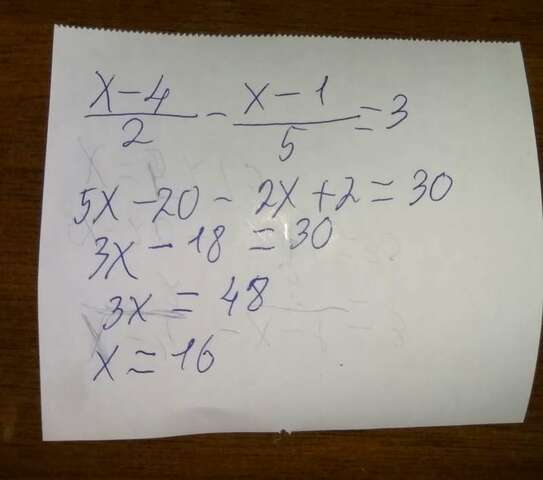 x-4/2 - x-1/5 = 3
5x - 20 - 2x + 2 = 30
3x - 18 = 30
3x = 48
x = 16